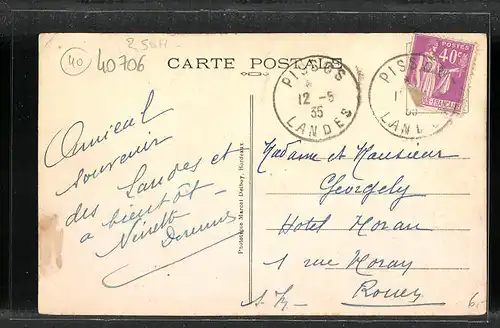 2,50 H
40
40706
CARTE POSTALE
PISSOS
12-8
35
LANDES
PISSOS
LANDES
POSTES
40c
Amical
souvenir
des Landes et
à bientôt -
Ninette
Phototypie Marcel Delboy, Bordeaux
Madame et Monsieur
Georgely
Hotel Moran
1 rue Moray
Rouen
6,-